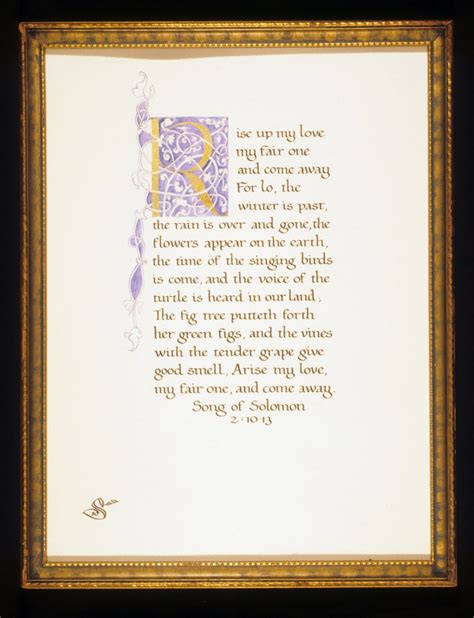 Rise up my love
my fair one
and come away
For lo, the
winter is past,
the rain is over and gone, the
flowers appear on the earth,
the time of the singing birds
is come, and the voice of the
turtle is heard in our land,
The fig tree putteth forth
her green figs, and the vines
with the tender grape give
good smell, Arise my love,
my fair one, and come away.
Song of Solomon
2:10-13